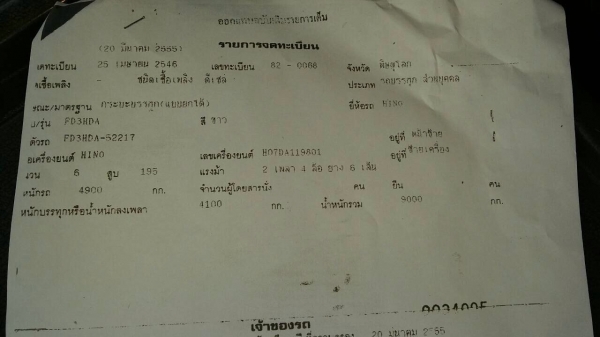 ออกแทนฉบับเดิมรายการเต็ม
(20 มีนาคม 2555)
รายการจดทะเบียน
25 เมษายน 2546 เลขทะเบียน 82-0088 จังหวัด พิษณุโลก
ชนิดเชื้อเพลิง ดีเซล ประเภท รถบรรทุก ส่วนบุคคล
ลักษณะ/มาตรฐาน กระบะบรรทุก(แบบยกได้) ยี่ห้อรถ HINO
FD3HDA สี ขาว
ตัวรถ FD3HDA-52217 อยู่ที่ หน้าซ้าย
HINO เลขเครื่องยนต์ H07DA119801 อยู่ที่ ซ้ายเครื่อง
6 สูบ 195 แรงม้า 2 เพลา 4 ล้อ ยาง 6 เส้น
4900 กก. จำนวนผู้โดยสารนั่ง คน ยืน คน
หนักบรรทุกหรือน้ำหนักลงเพลา 4100 กก. น้ำหนักรวม 9000 กก.
เจ้าของรถ
20 มีนาคม 2555